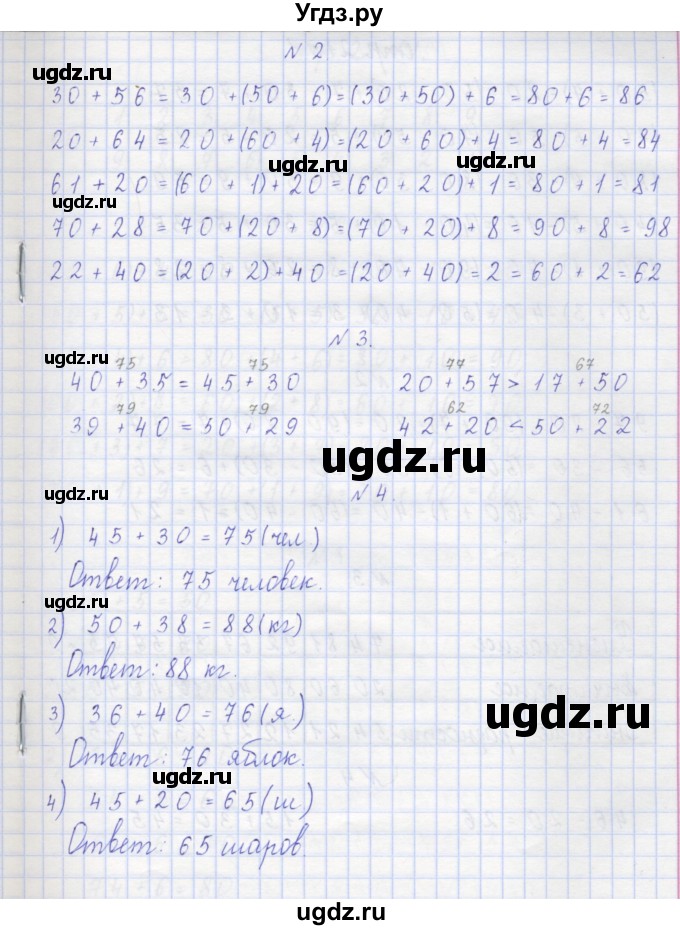 Угдз.ру
N 2
ugdz.ru
30 + 56 = 30 + (50 + 6) = (30 + 50) + 6 = 80 + 6 = 86
20 + 64 = 20 + (60 + 4) = (20 + 60) + 4 = 80 + 4 = 84
ugdz.ru ugdz.ru
61 + 20 = (60 + 1) + 20 = (60 + 20) + 1 = 80 + 1 = 81
ugdz.ru
70 + 28 = 70 + (20 + 8) = (70 + 20) + 8 = 90 + 8 = 98
22 + 40 = (20 + 2) + 40 = (20 + 40) = 2 = 60 + 2 = 62
N 3.
ugdz.ru
75 75 77 67
40 + 35 = 45 + 30 20 + 57 > 17 + 50
79 79 62 72
39 + 40 = 50 + 29 42 + 20 < 50 + 22
ugdz.ru
N 4.
ugdz.ru
1) 45 + 30 = 75 (чел.)
Ответ: 75 человек.
ugdz.ru
2) 50 + 38 = 88 (кг)
Ответ: 88 кг.
ugdz.ru
3) 36 + 40 = 76 (я.)
ugdz.ru
Ответ: 76 яблок.
ugdz.ru
4) 45 + 20 = 65 (ш)
Ответ: 65 шаров.
ugdz.ru
ugdz.ru